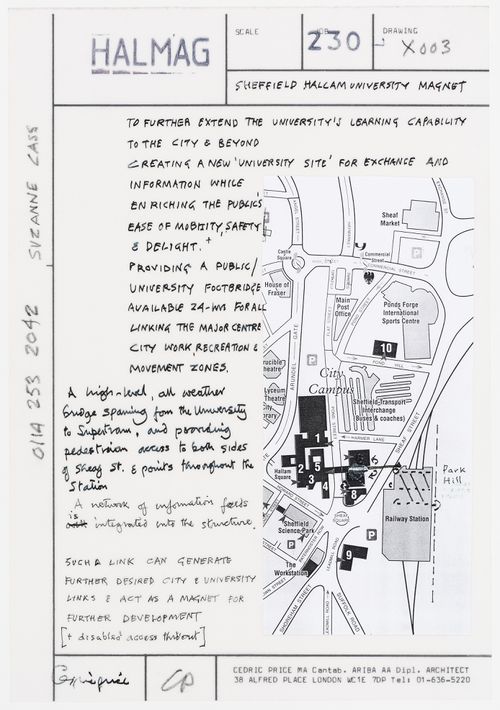 HALMAG
SCALE
JOB
230
DRAWING
X003
SHEFFIELD HALLAM UNIVERSITY MAGNET
TO FURTHER EXTEND THE UNIVERSITY'S LEARNING CAPABILITY
TO THE CITY & BEYOND
CREATING A NEW 'UNIVERSITY SITE' FOR EXCHANGE AND
INFORMATION WHILE
ENRICHING THE PUBLICS
EASE OF MOBILITY, SAFETY
& DELIGHT. +
PROVIDING A PUBLIC/
UNIVERSITY FOOTBRIDGE
AVAILABLE 24-HRS FOR ALL
LINKING THE MAJOR CENTRE
CITY WORK RECREATION &
MOVEMENT ZONES.
A high-level, all weather
bridge spanning from the University
to Supertram, and providing
pedestrian access to both sides
of Sheaf St. & points throughout the
Station
A network of information feeds
is integrated into the structure.
SUCH A LINK CAN GENERATE
FURTHER DESIRED CITY & UNIVERSITY
LINKS & ACT AS A MAGNET FOR
FURTHER DEVELOPMENT
[+ disabled access thr'out]
SUZANNE CASS
0114 253 2042
Sheaf
Market
Castle
Square
Commercial
Street
COMMERCIAL STREET
HIGH STREET
House of
Fraser
Main
Post
Office
Ponds Forge
International
Sports Centre
10
POND HILL
ARUNDEL GATE
Crucible
Theatre
Lyceum
Theatre
City
Library
City
Campus
Sheffield Transport
Interchange
(Buses & coaches)
HARMER LANE
SHEAF STREET
1
2
5
3
4
8
Hallam
Square
Park
Hill
Railway Station
SHEAF
SQUARE
Sheffield
Science Park
9
The
Workstation
SHOREHAM STREET
SUFFOLK ROAD
LEADMILL ROAD
P
P
P
CP
CEDRIC PRICE MA Cantab. ARIBA AA Dipl. ARCHITECT
38 ALFRED PLACE LONDON WC1E 7DP Tel: 01-636-5220